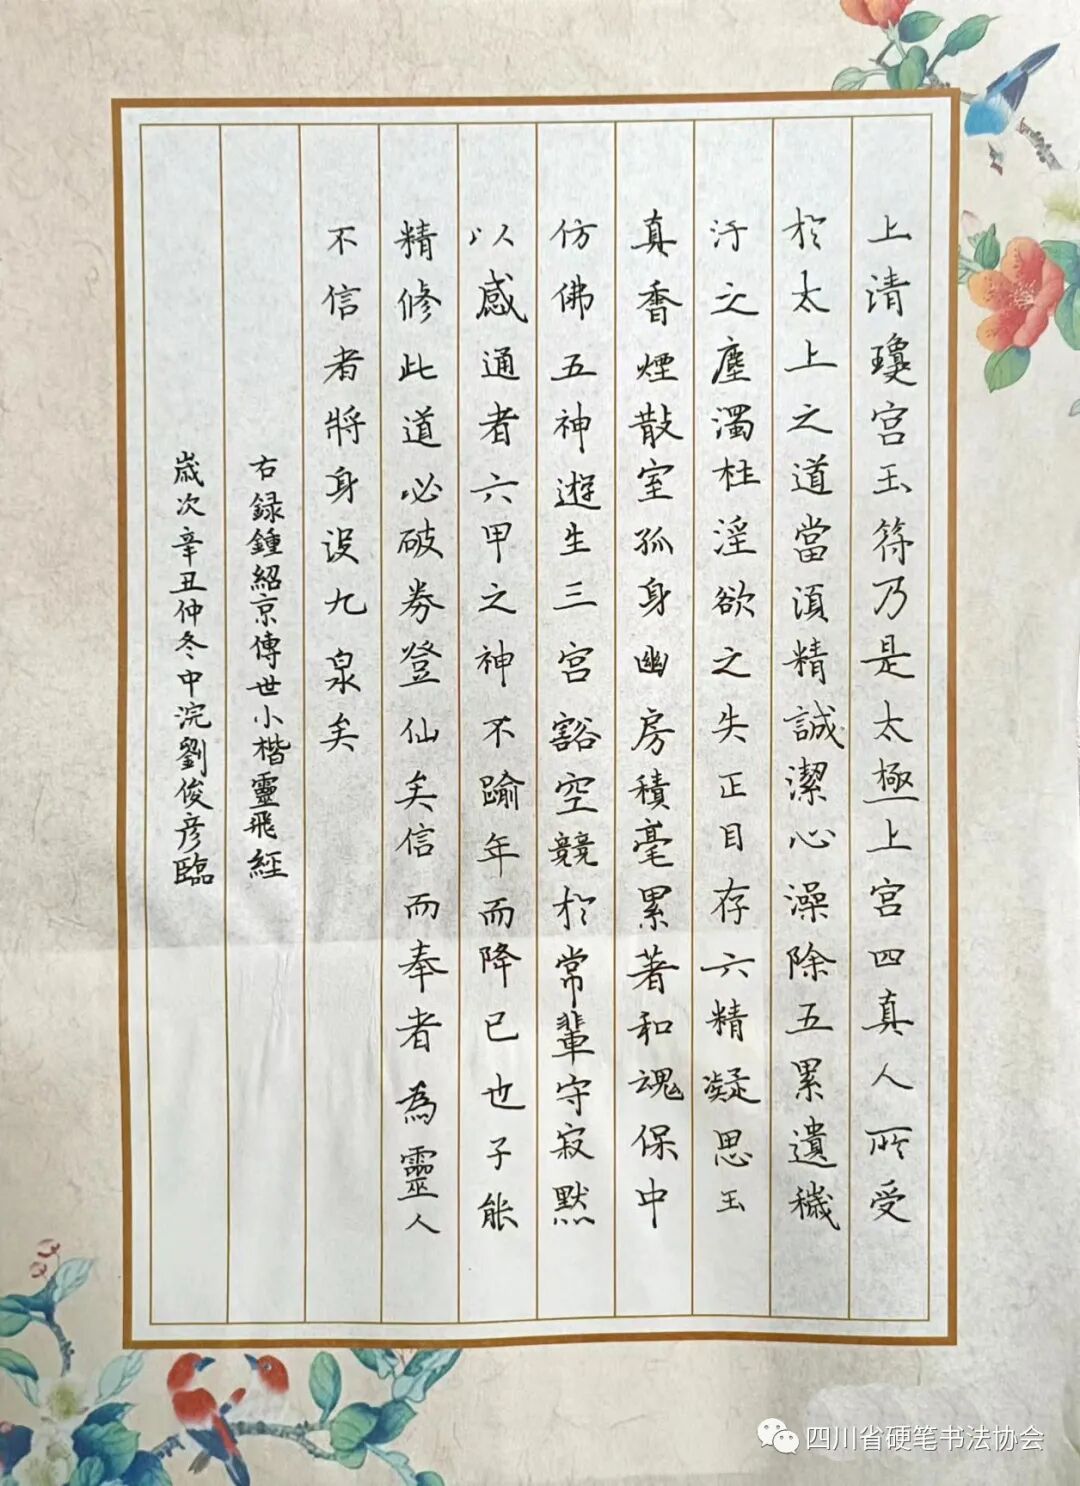 上清瓊宫玉符乃是太極上宫四真人所受
於太上之道當須精誠潔心澡除五累遺穢
汙之塵濁杜淫欲之失正目存六精凝思玉
真香煙散室孤身幽房積毫累著和魂保中
仿佛五神遊生三宫豁空競於常輩守寂默
以感通者六甲之神不踰年而降已也子能
精修此道必破券登仙矣信而奉者為靈人
不信者將身没九泉矣
右録鍾紹京傳世小楷靈飛經
嵗次辛丑仲冬中浣劉俊彦臨
四川省硬笔书法协会